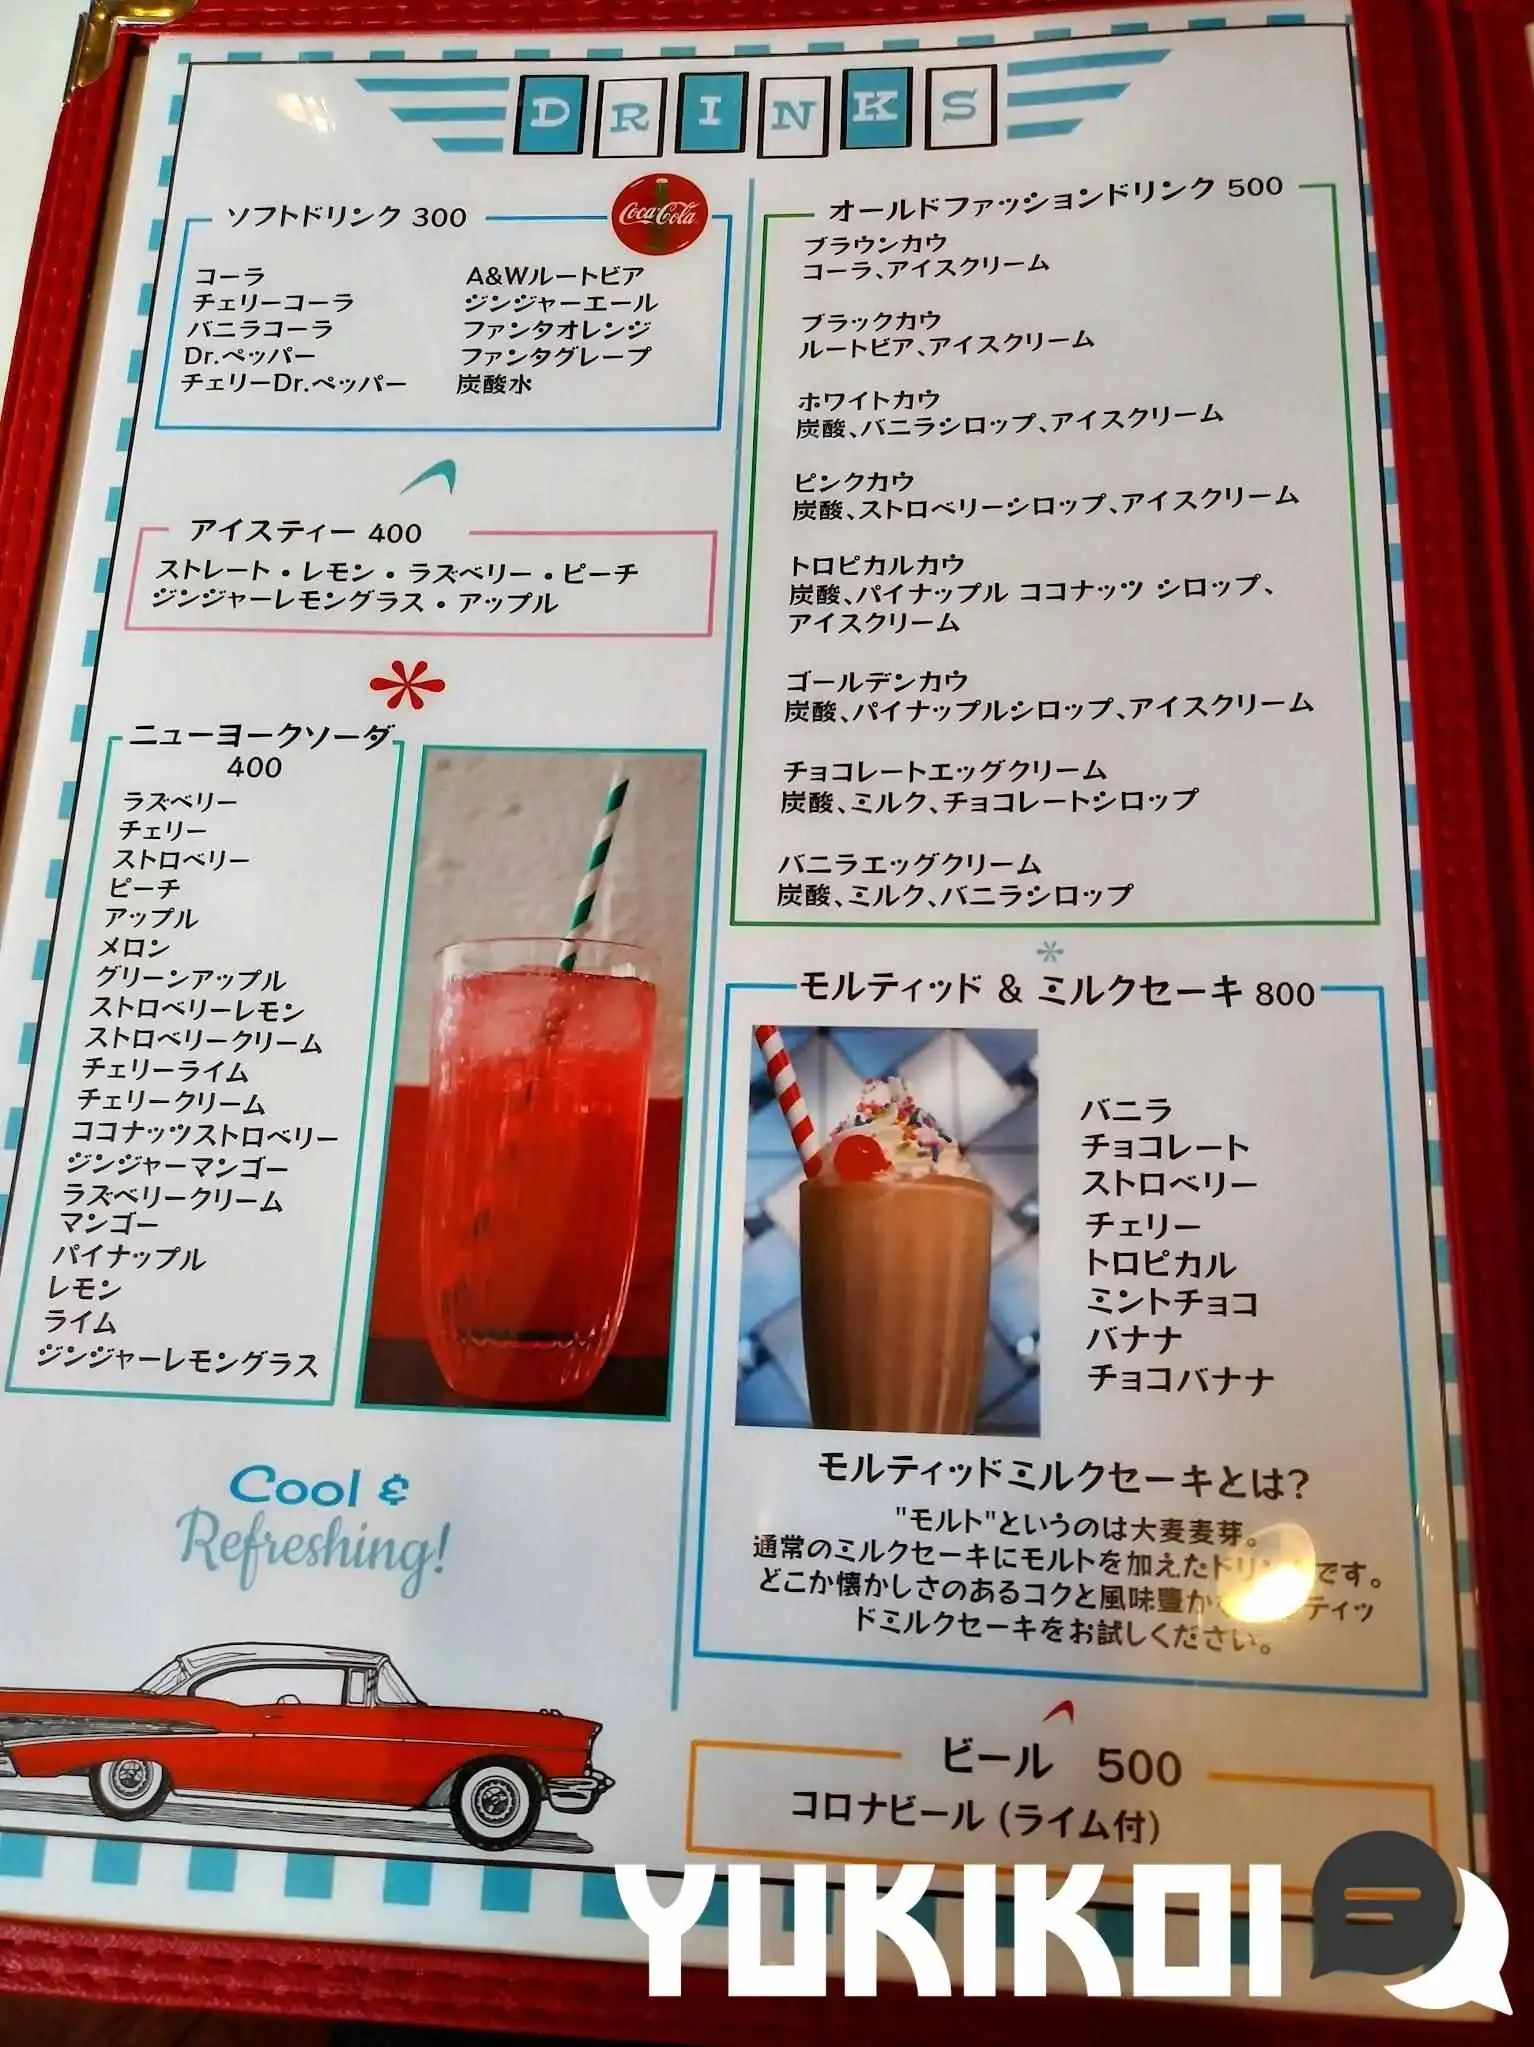 DRINKS
ソフトドリンク 300
Coca-Cola
コーラ
チェリーコーラ
バニラコーラ
Dr.ペッパー
チェリーDr.ペッパー
A&Wルートビア
ジンジャーエール
ファンタオレンジ
ファンタグレープ
炭酸水
アイスティー 400
ストレート・レモン・ラズベリー・ピーチ
ジンジャーレモングラス・アップル
ニューヨークソーダ
400
ラズベリー
チェリー
ストロベリー
ピーチ
アップル
メロン
グリーンアップル
ストロベリーレモン
ストロベリークリーム
チェリーライム
チェリークリーム
ココナッツストロベリー
ジンジャーマンゴー
ラズベリークリーム
マンゴー
パイナップル
レモン
ライム
ジンジャーレモングラス
Cool &
Refreshing!
オールドファッションドリンク 500
ブラウンカウ
コーラ、アイスクリーム
ブラックカウ
ルートビア、アイスクリーム
ホワイトカウ
炭酸、バニラシロップ、アイスクリーム
ピンクカウ
炭酸、ストロベリーシロップ、アイスクリーム
トロピカルカウ
炭酸、パイナップル ココナッツ シロップ、
アイスクリーム
ゴールデンカウ
炭酸、パイナップルシロップ、アイスクリーム
チョコレートエッグクリーム
炭酸、ミルク、チョコレートシロップ
バニラエッグクリーム
炭酸、ミルク、バニラシロップ
モルティッド & ミルクセーキ 800
バニラ
チョコレート
ストロベリー
チェリー
トロピカル
ミントチョコ
バナナ
チョコバナナ
モルティッドミルクセーキとは?
"モルト"というのは大麦麦芽。
通常のミルクセーキにモルトを加えたドリンクです。
どこか懐かしさのあるコクと風味豊か ティッ
ドミルクセーキをお試しください。
ビール 500
コロナビール (ライム付)
YUKIKOI